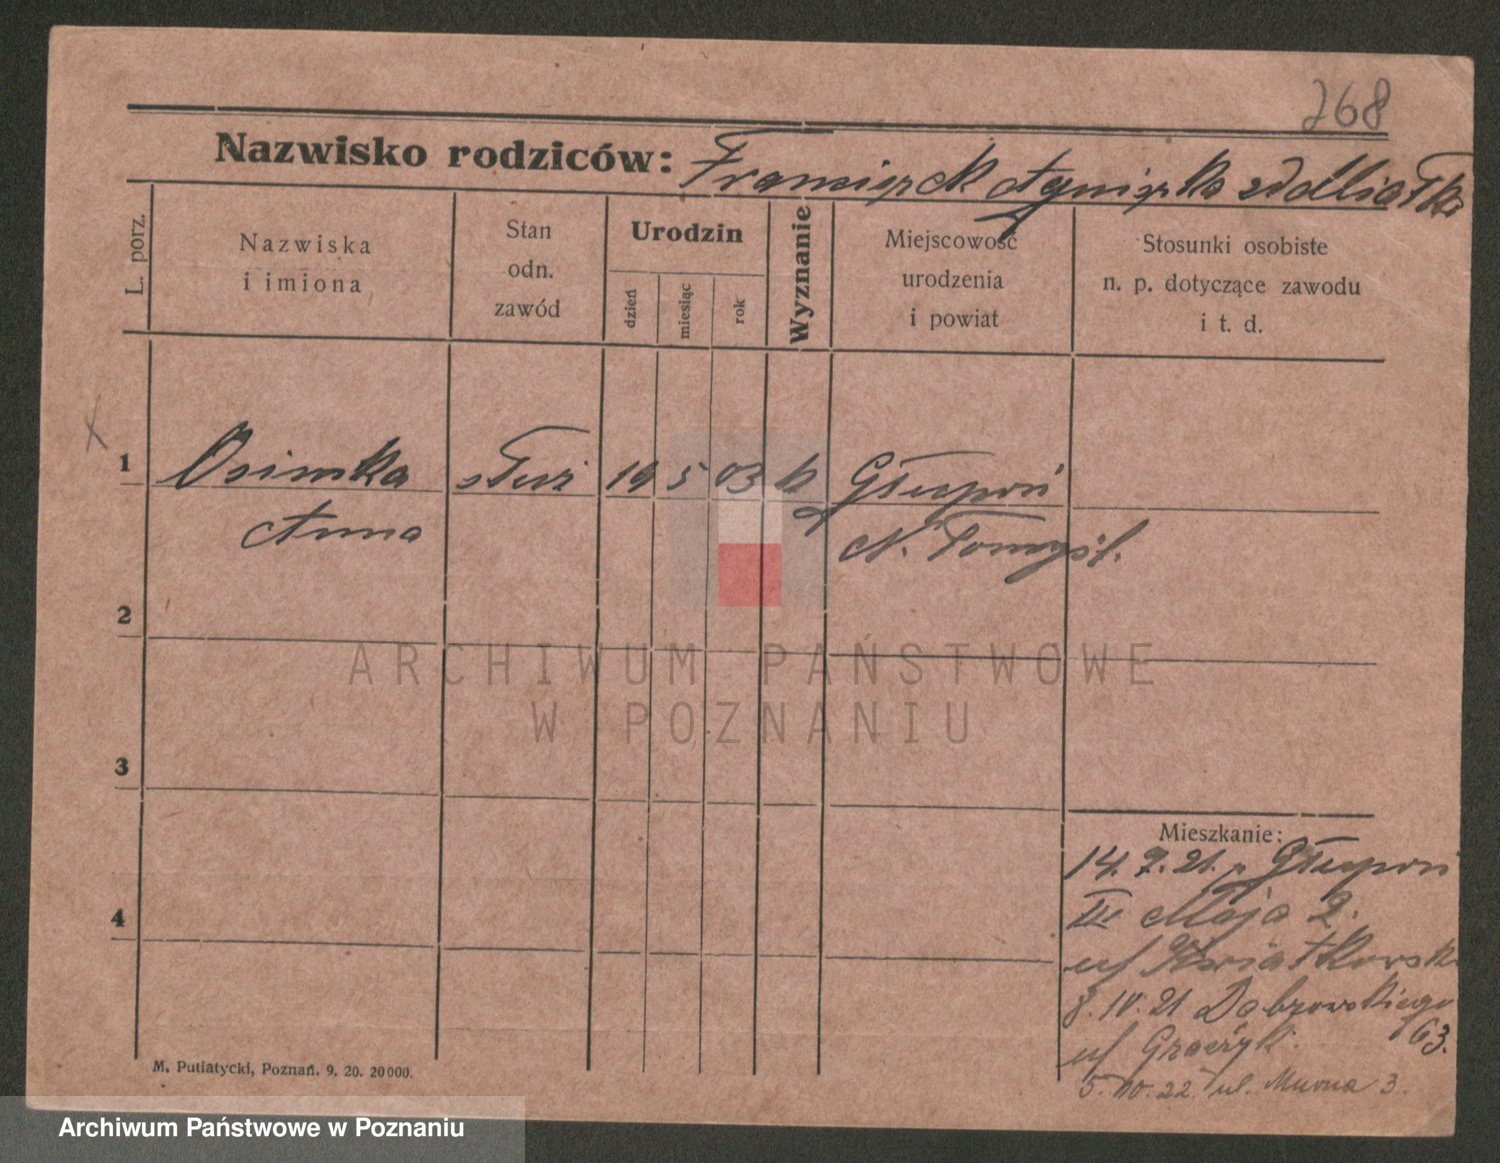 268
Nazwisko rodziców: Franciszek Agnieszka z d Uliatka
L. porz.
Nazwiska
i imiona
Stan
odn.
zawód
Urodzin
dzień
miesiąc
rok
Wyznanie
Miejscowość
urodzenia
i powiat
Stosunki osobiste
n. p. dotyczące zawodu
i t. d.
1 Osimka służ 19 5 03 k Głupoń
Anna N. Tomyśl.
2
3
4
Mieszkanie:
14. 2. 21. Głupoń
III Maja 2.
Kwiatkowski
8. IV. 21 Dąbrowskiego
63.
Graczyk.
5. 10. 22. ul. Murna 3.
M. Putiatycki, Poznań. 9. 20. 20000.
ARCHIWUM PAŃSTWOWE
W POZNANIU
Archiwum Państwowe w Poznaniu